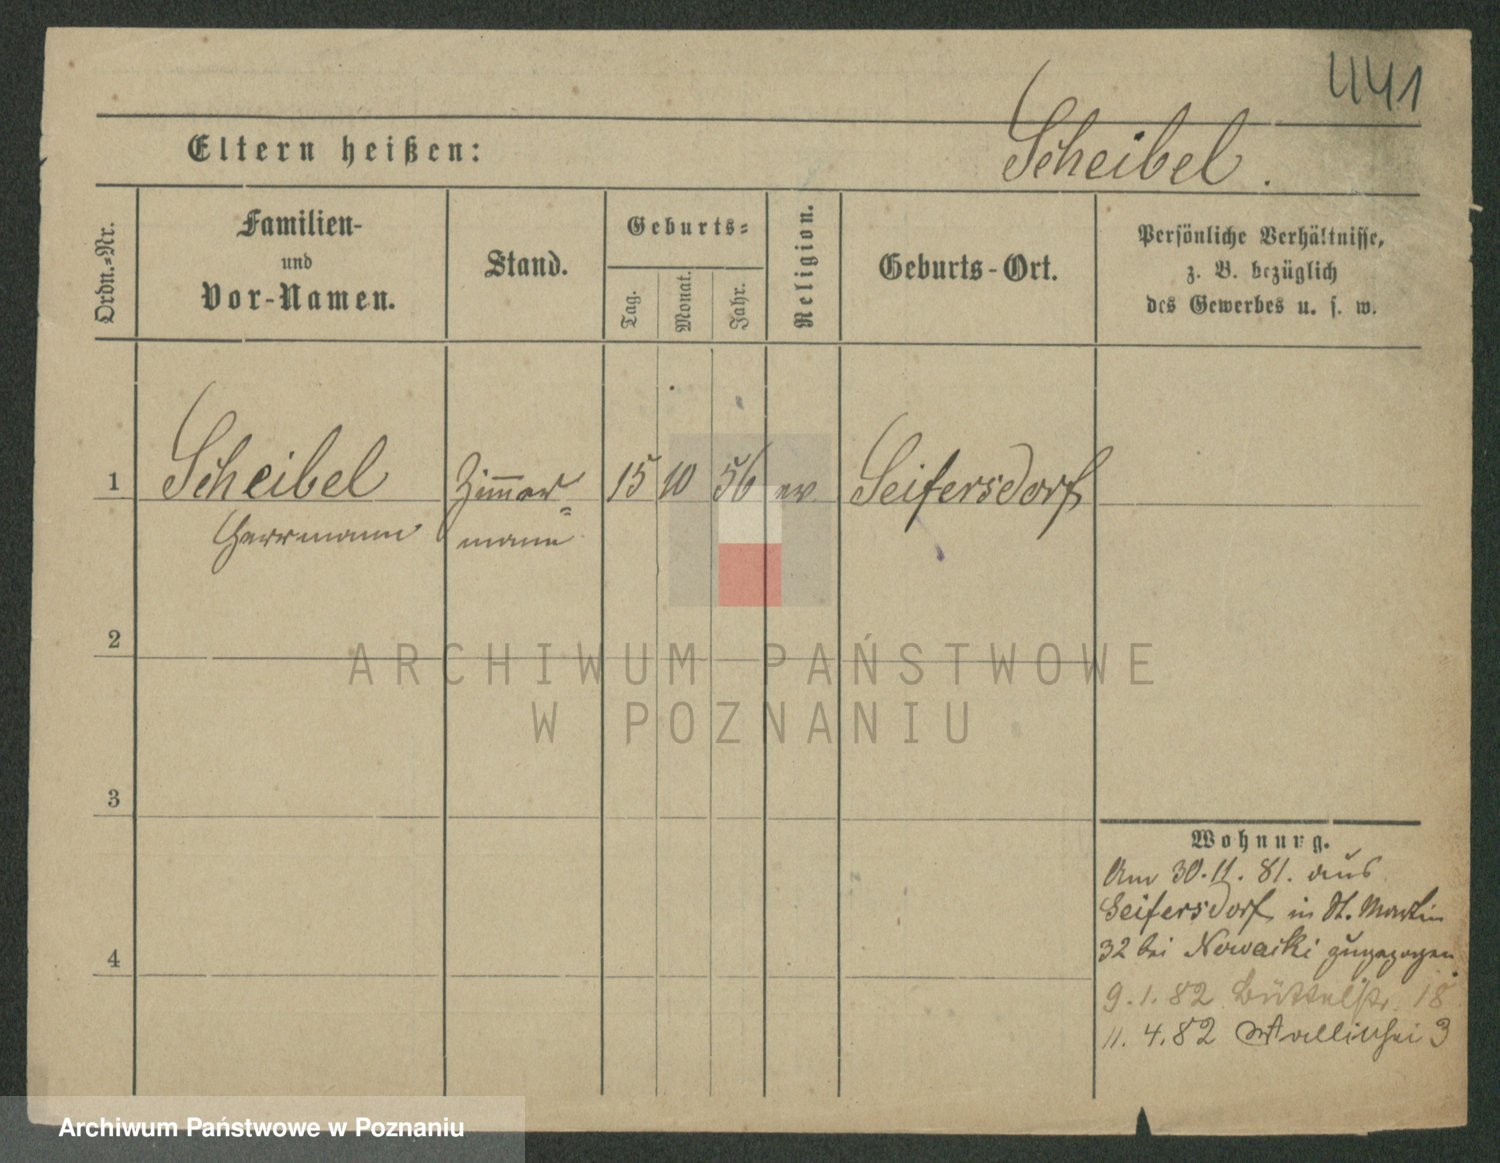 441
Eltern heißen:
Scheibel.
Ordn.-Nr.
Familien-
und
Vor-Namen.
Stand.
Geburts-
Tag.
Monat.
Jahr.
Religion.
Geburts-Ort.
Persönliche Verhältnisse,
z. B. bezüglich
des Gewerbes u. s. w.
1
Scheibel
Herrmann
Zimmer-
mann
15
10
56
ev
Seifersdorf
2
ARCHIWUM PAŃSTWOWE
W POZNANIU
3
4
Wohnung.
Am 30.11.81. aus
Seifersdorf in St. Martin
32 bei Nowacki zugezogen.
9.1.82 Büttelstr. 18
11.4.82 3
Archiwum Państwowe w Poznaniu